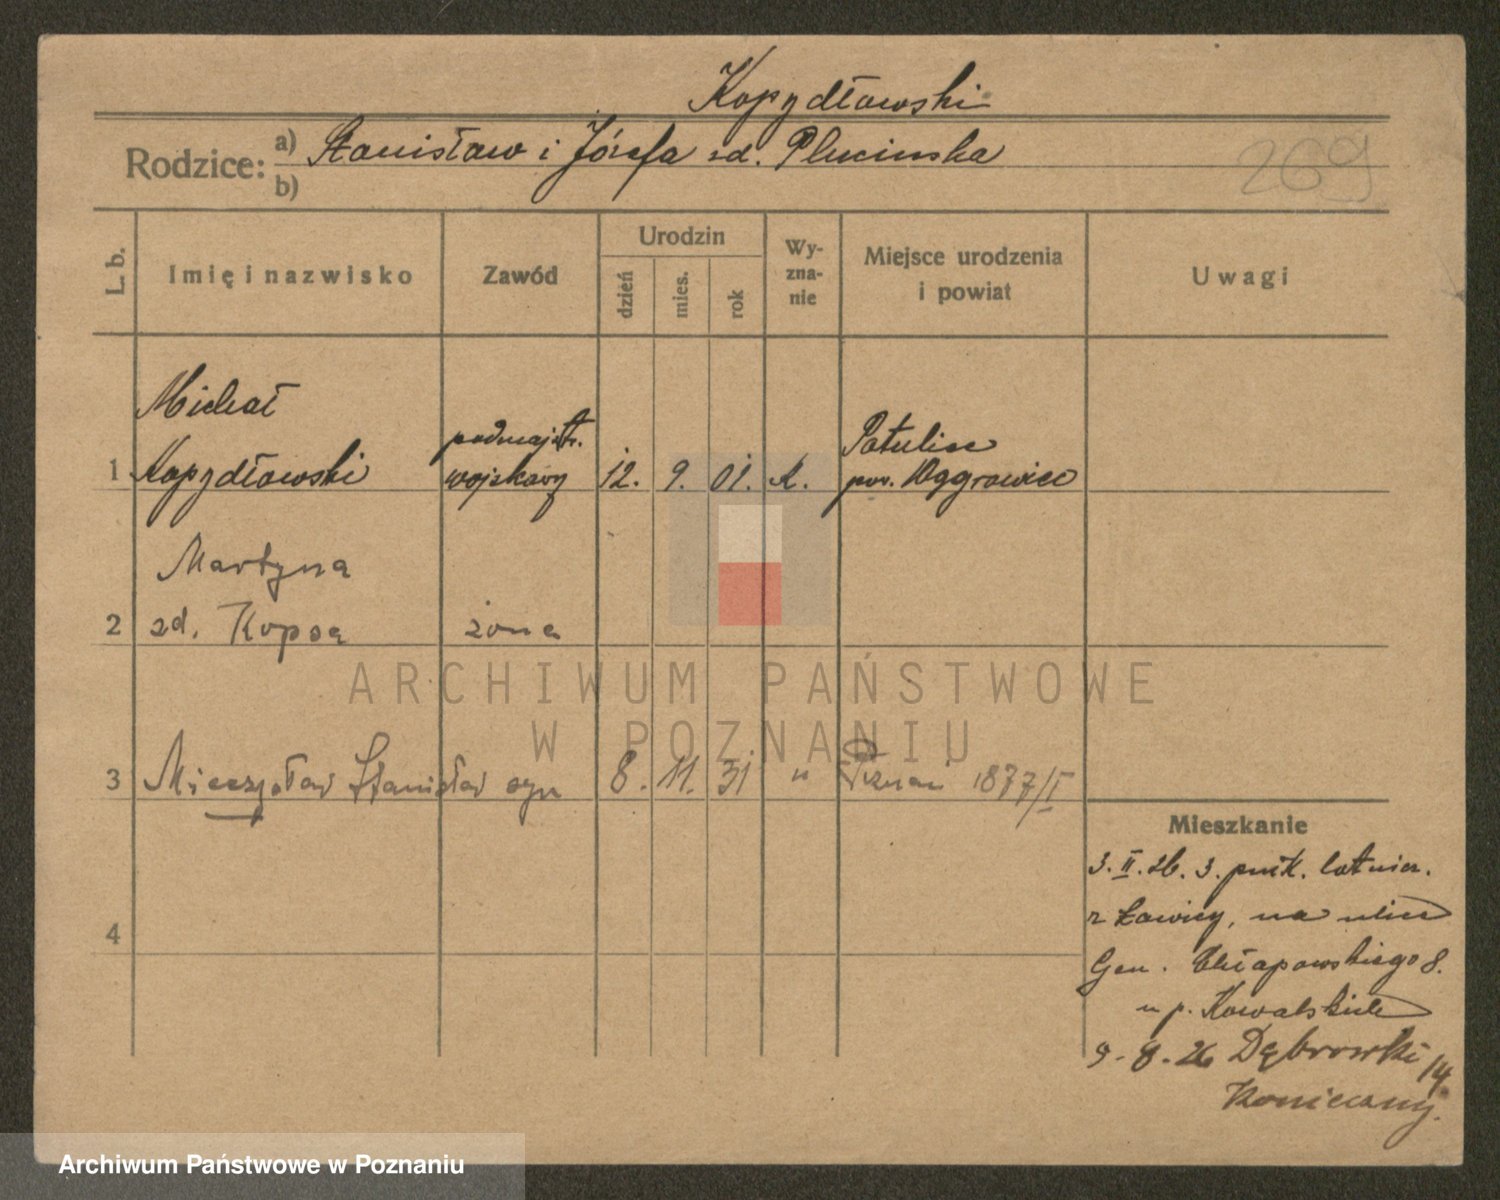 Kopydłowski
Rodzice: a) Stanisław i Józefa zd. Plucinska
b)
269
L. b.
Imię i nazwisko
Zawód
Urodzin
dzień
mies.
rok
Wy-
zna-
nie
Miejsce urodzenia
i powiat
Uwagi
Michał
podmajstr.
Potulice
1 Kopydłowski wojskowy 12. 9. 01. k. pow. Wągrowiec
Martyna
2 zd. Kopsa żona
ARCHIWUM PAŃSTWOWE
W POZNANIU
3 Mieczysław Stanisław syn 8. 11. 31 " Poznań 1877/I
4
Mieszkanie
3. II. 26. 3. pułk. lotnicz.
z Ławicy, na ulicę
Gen. Chłapowskiego 8.
u p. Kowalskich
9. 8. 26 Dąbrowski 14
Konieczny.
Archiwum Państwowe w Poznaniu